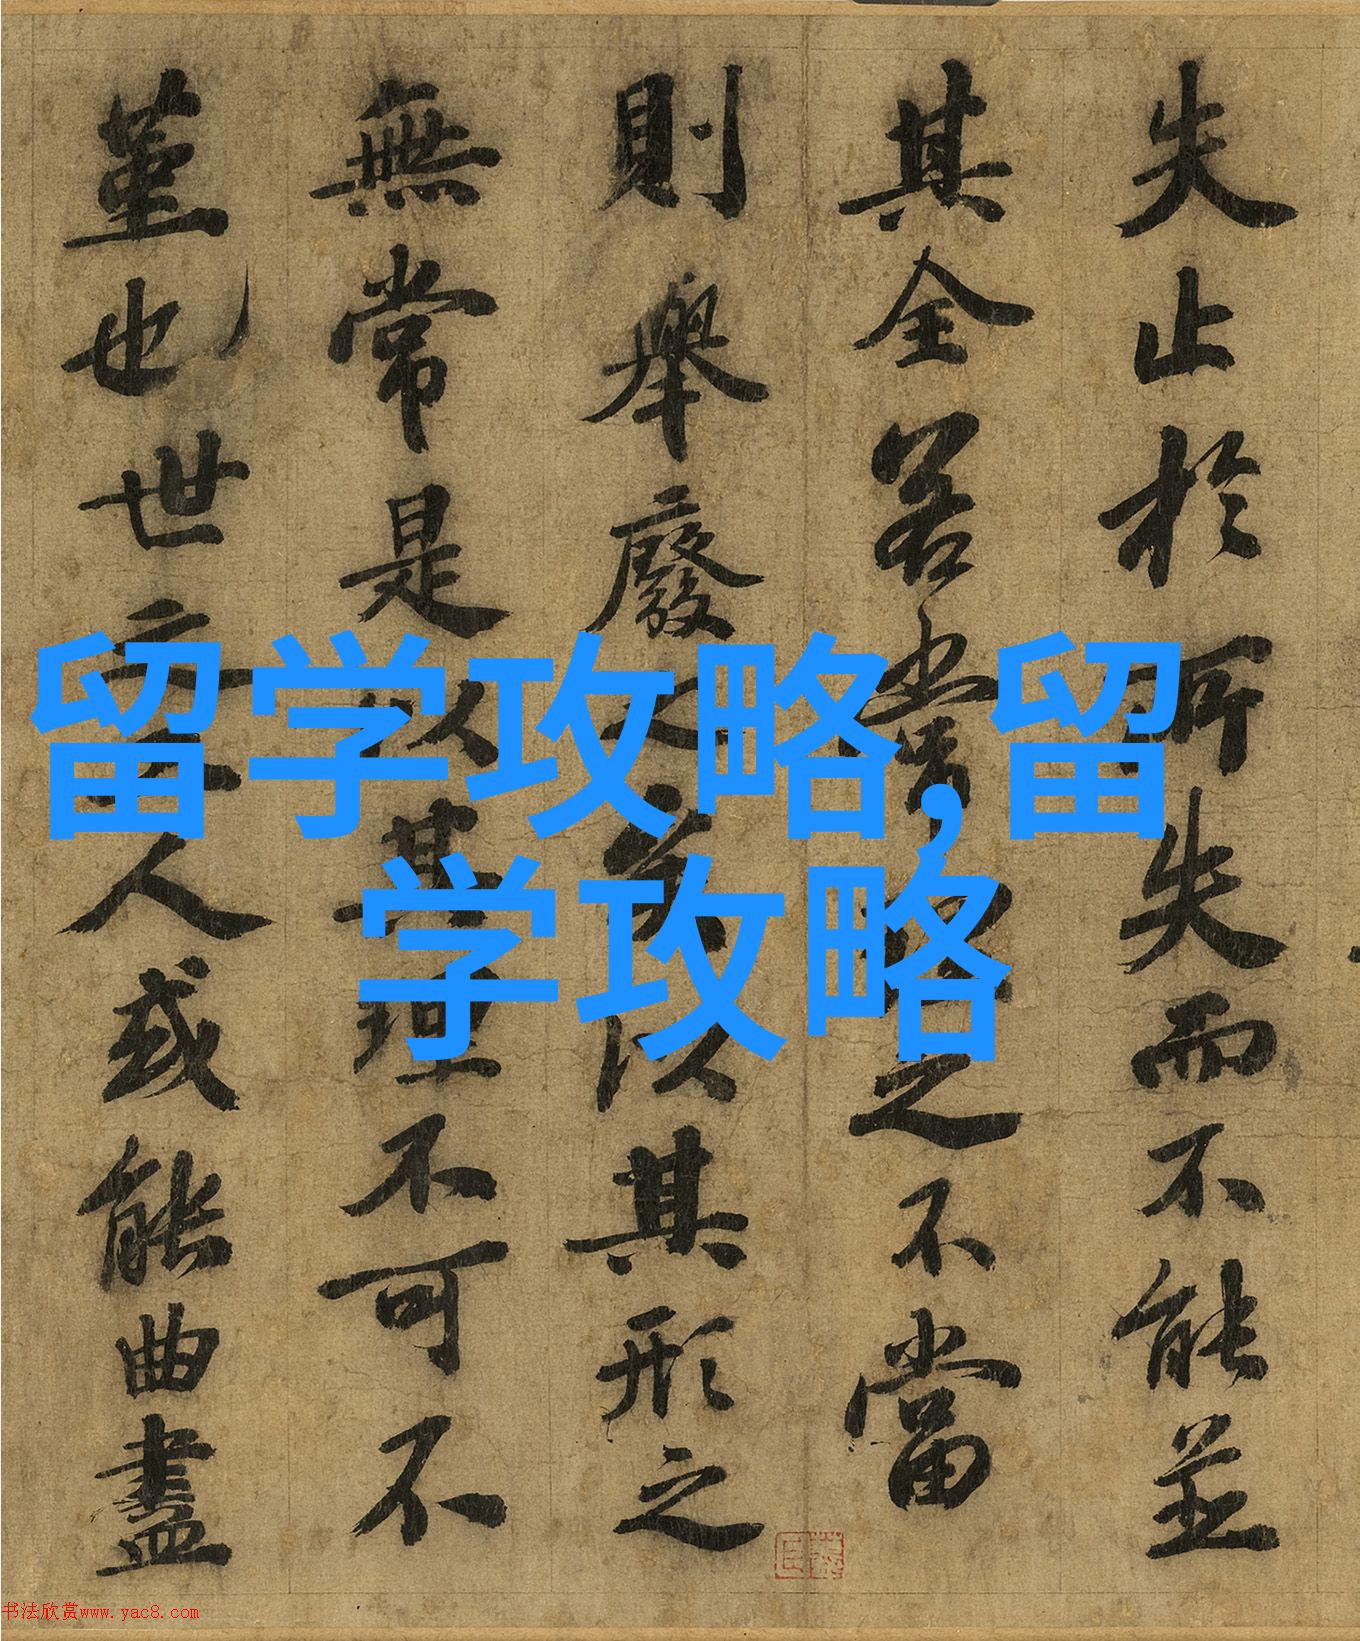 失止於所失而不能並
其全若常理之不當
則舉廢之矣以其形之
無常是以其理不可不
堇也世之工人或能曲盡
留学攻略,留
学攻略
书法欣赏www.yac8.com